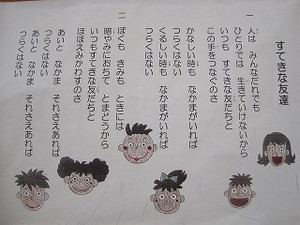 すてきな友達
一
人は みんなだれでも
ひとりでは 生きていけないから
いつも すてきな友だちと
この手をつなぐのさ
かなしい時も なかまがいれば
つらくはない
くるしい時も なかまがいれば
つらくはない
二
ぼくも きみも ときには
暗やみにおちて とまどうから
いつもすてきな友だちと
ほほえみかわすのさ
あいと なかま それさえあれば
つらくはない
あいと なかま それさえあれば
つらくはない